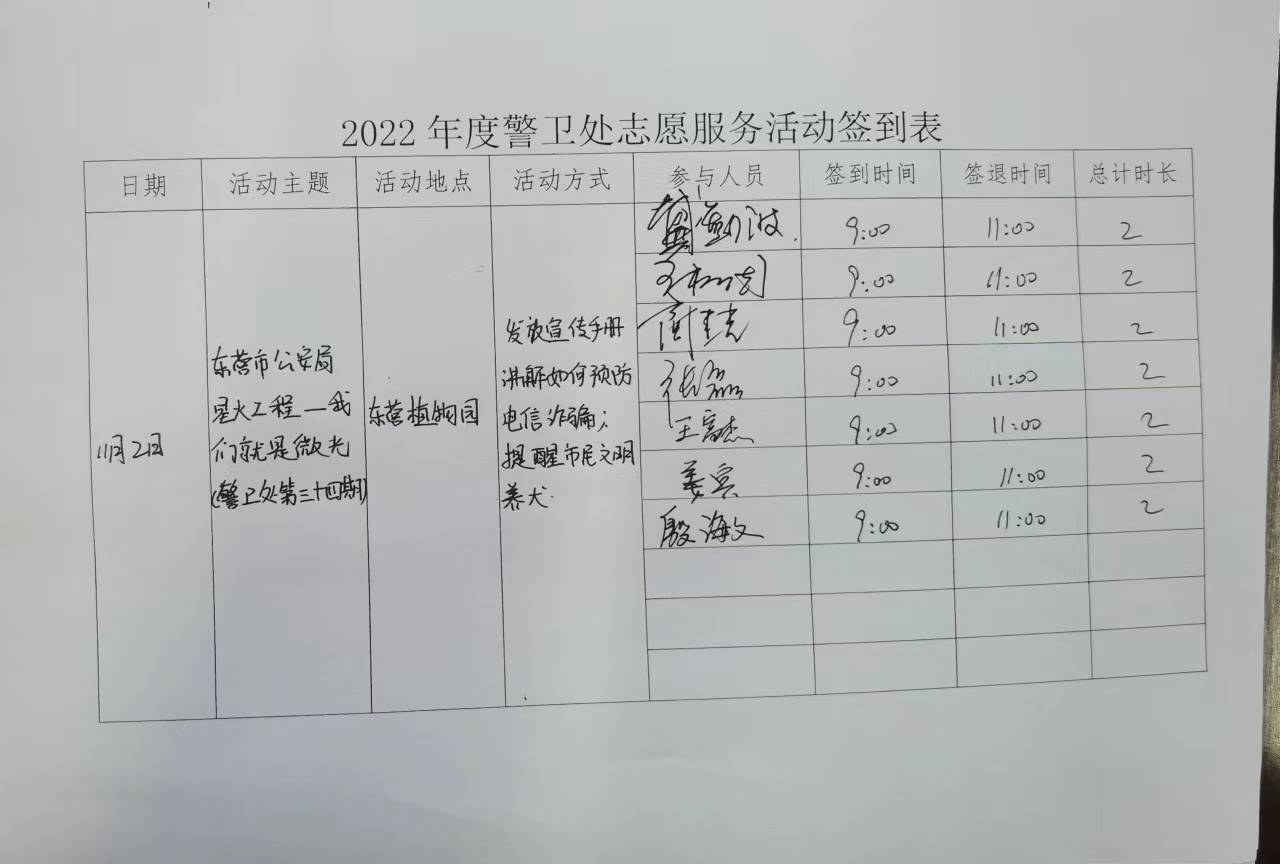 2022 年度警卫处志愿服务活动签到表
日期 活动主题 活动地点 活动方式 参与人员 签到时间 签退时间 总计时长
11月2日
东营市公安局
星火工程—我
们就是微光
(警卫处第三十四期)
东营植物园
发放宣传手册
讲解如何预防
电信诈骗；
提醒市民文明
养犬.
9:00 11:00 2
9:00 11:00 2
9:00 11:00 2
张磊 9:00 11:00 2
王富杰 9:00 11:00 2
姜宾 9:00 11:00 2
殷海文 9:00 11:00 2